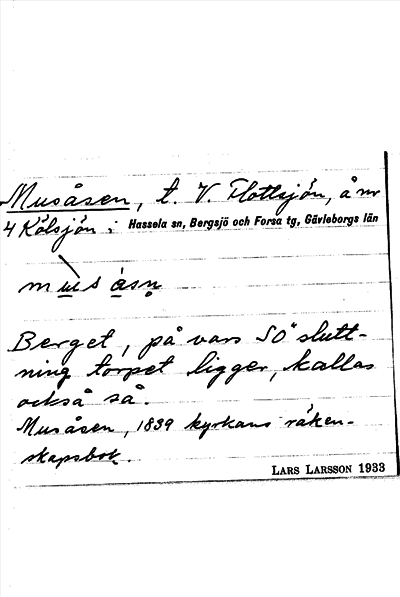 Musåsen, t. V. Flottsjön, å nr
4 Kölsjön i Hassela sn, Bergsjö och Forsa tg, Gävleborgs län
mùs åsn̥
Berget, på vars SO slutt-
ning torpet ligger, kallas
också så.
Musåsen, 1839 kyrkans räken-
skapsbok.
LARS LARSSON 1933